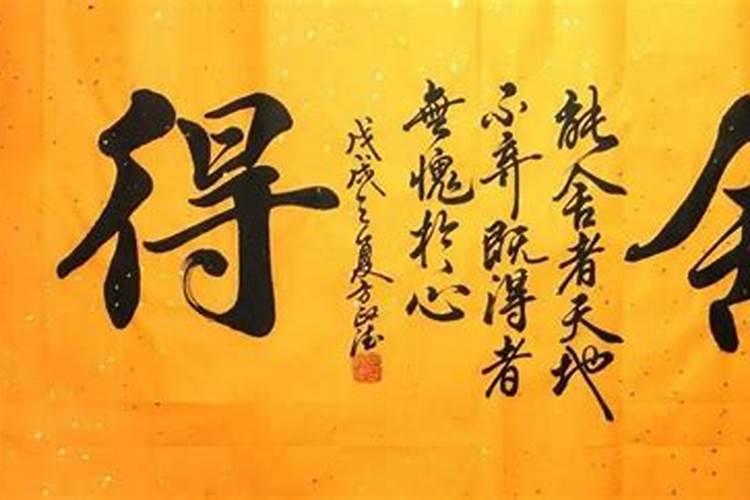 舍
能舍者天地
不弃既得者
無愧於心
戊戌之夏方政德
得